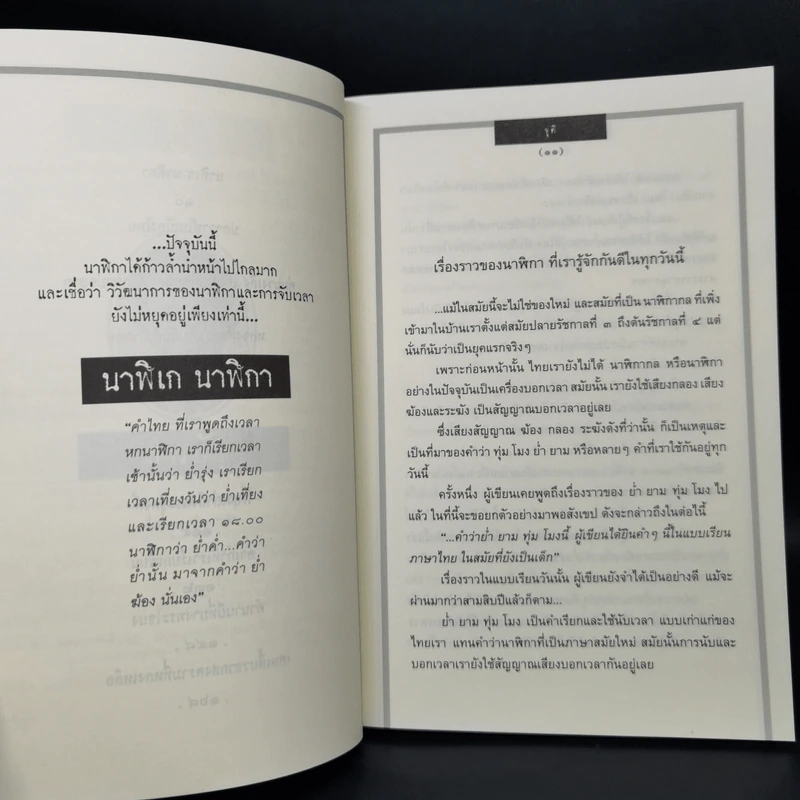 ...ปัจจุบันนี้
นาฬิกาได้ก้าวล้ำนำหน้าไปไกลมาก
และเชื่อว่า วิวัฒนาการของนาฬิกาและการจับเวลา
ยังไม่หยุดอยู่เพียงเท่านี้...
นาฬิเก นาฬิกา
"คำไทย ที่เราพูดถึงเวลา
หกนาฬิกา เราก็เรียกเวลา
เช้านั้นว่า ย่ำรุ่ง เราเรียก
เวลาเที่ยงวันว่า ย่ำเที่ยง
และเรียกเวลา ๑๘.๐๐
นาฬิกาว่า ย่ำค่ำ...คำว่า
ย่ำนั้น มาจากคำว่า ย่ำ
ฆ้อง นั่นเอง"
(๑๑)
เรื่องราวของนาฬิกา ที่เรารู้จักกันดีในทุกวันนี้
...แม้ในสมัยนี้จะไม่ใช่ของใหม่ และสมัยที่เป็น นาฬิกากล ที่เพิ่ง
เข้ามาในบ้านเราตั้งแต่สมัยปลายรัชกาลที่ ๓ ถึงต้นรัชกาลที่ ๔ แต่
นั่นก็นับว่าเป็นยุคแรกจริงๆ
เพราะก่อนหน้านั้น ไทยเรายังไม่ได้ นาฬิกากล หรือนาฬิกา
อย่างในปัจจุบันเป็นเครื่องบอกเวลา สมัยนั้น เรายังใช้เสียงกลอง เสียง
ฆ้องและระฆัง เป็นสัญญาณบอกเวลาอยู่เลย
ซึ่งเสียงสัญญาณ ฆ้อง กลอง ระฆังดังที่ว่านั้น ก็เป็นเหตุและ
เป็นที่มาของคำว่า ทุ่ม โมง ย่ำ ยาม หรือหลายๆ คำที่เราใช้กันอยู่ทุก
วันนี้
ครั้งหนึ่ง ผู้เขียนเคยพูดถึงเรื่องราวของ ย่ำ ยาม ทุ่ม โมง ไป
แล้ว ในที่นี้จะขอยกตัวอย่างมาพอสังเขป ดังจะกล่าวถึงในต่อไปนี้
"...คำว่าย่ำ ยาม ทุ่ม โมงนี้ ผู้เขียนได้ยินคำๆ นี้ในแบบเรียน
ภาษาไทย ในสมัยที่ยังเป็นเด็ก"
เรื่องราวในแบบเรียนวันนั้น ผู้เขียนยังจำได้เป็นอย่างดี แม้จะ
ผ่านมากว่าสามสิบปีแล้วก็ตาม...
ย่ำ ยาม ทุ่ม โมง เป็นคำเรียกและใช้นับเวลา แบบเก่าแก่ของ
ไทยเรา แทนคำว่านาฬิกาที่เป็นภาษาสมัยใหม่ สมัยนั้นการนับและ
บอกเวลาเรายังใช้สัญญาณเสียงบอกเวลากันอยู่เลย